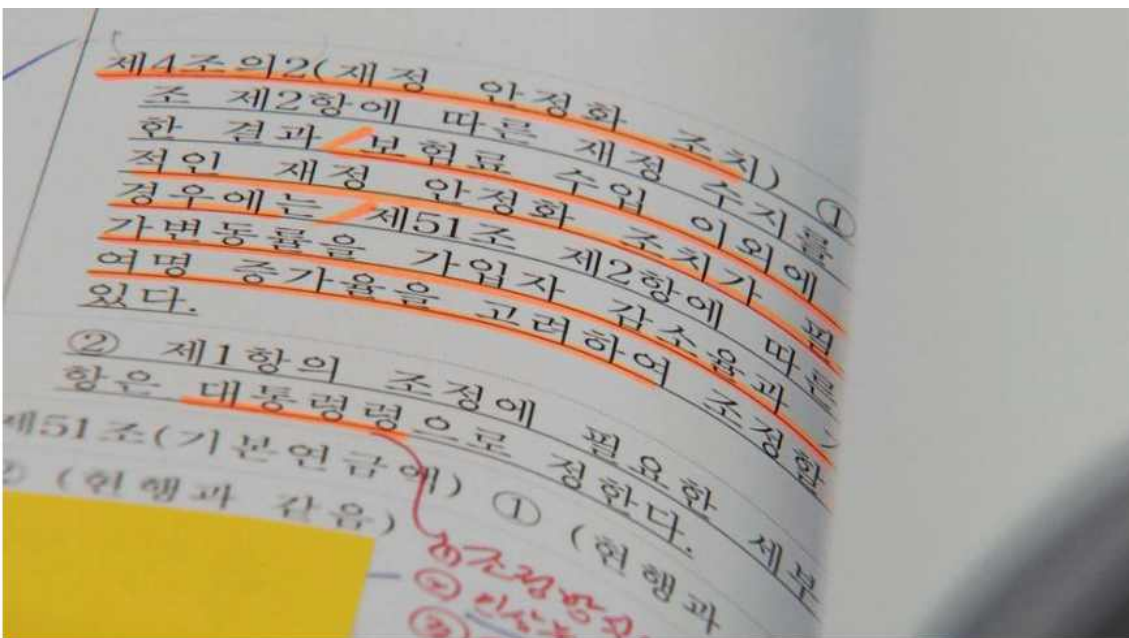 제4조의2(재정 안정화 조치) ①
조 제2항에 따른 재정 수지를
한 결과 보험료 수입 이외에
적인 재정 안정화 조치가 필
경우에는 제51조 제2항에 따른
가변동률을 가입자 감소율과
여명 증가율을 고려하여 조정할
있다.
② 제1항의 조정에 필요한 세부
항은 대통령령으로 정한다.
제51조(기본연금액) ① (현행과
② (현행과 같음)